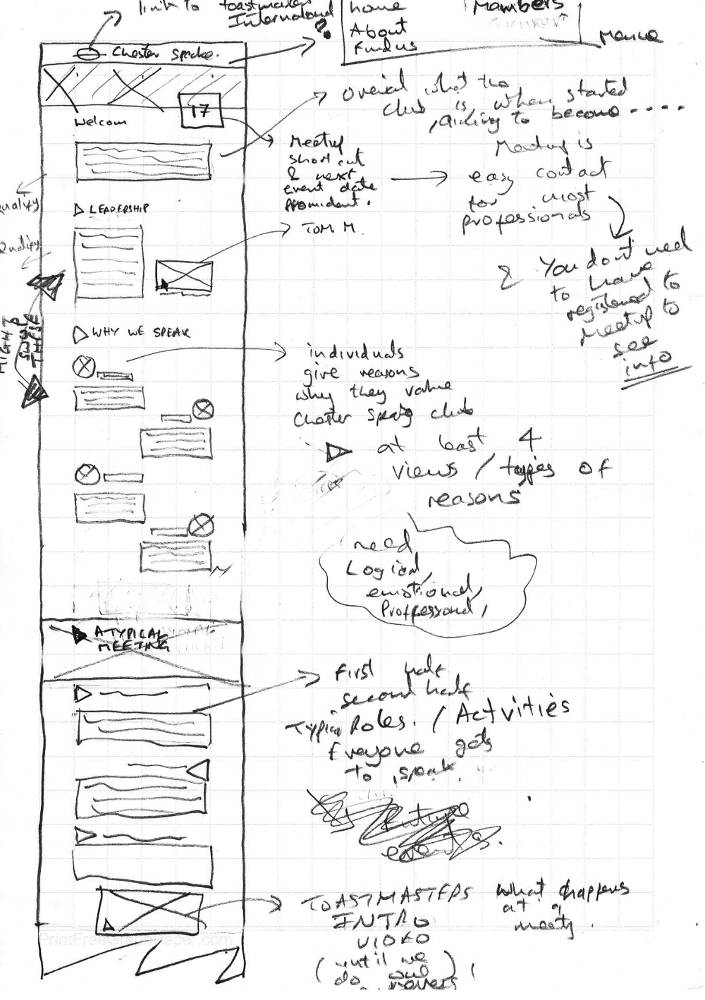 link to toastmasters
International
?
home
About
Find us
Members
Menu
Chester Speake.
17
Welcom
Overial what the
club is, when started
, aiding to become ....
Meetup
short cut
& next
event date
prominent.
Meetup is
easy contact
for most
professionals
& You don't need
to have
registered to
meetup to
see
info
LEADERSHIP
TOM M.
MIGHT
SWAP
THESE
WHY WE SPEAK
individuals
give reasons
why they value
Chester Speaing club
at least 4
views / types of
reasons
need
Logical,
emotional,
Proffessional,
A TYPICAL
MEETING
First half
second half
Typical Roles. / Activities
Everyone gets
to speak.
Future
events.
TOASTMASTERS what happens
INTRO at a
VIDEO meety.
(until we
do our
PrintFreeGraphPaper.com